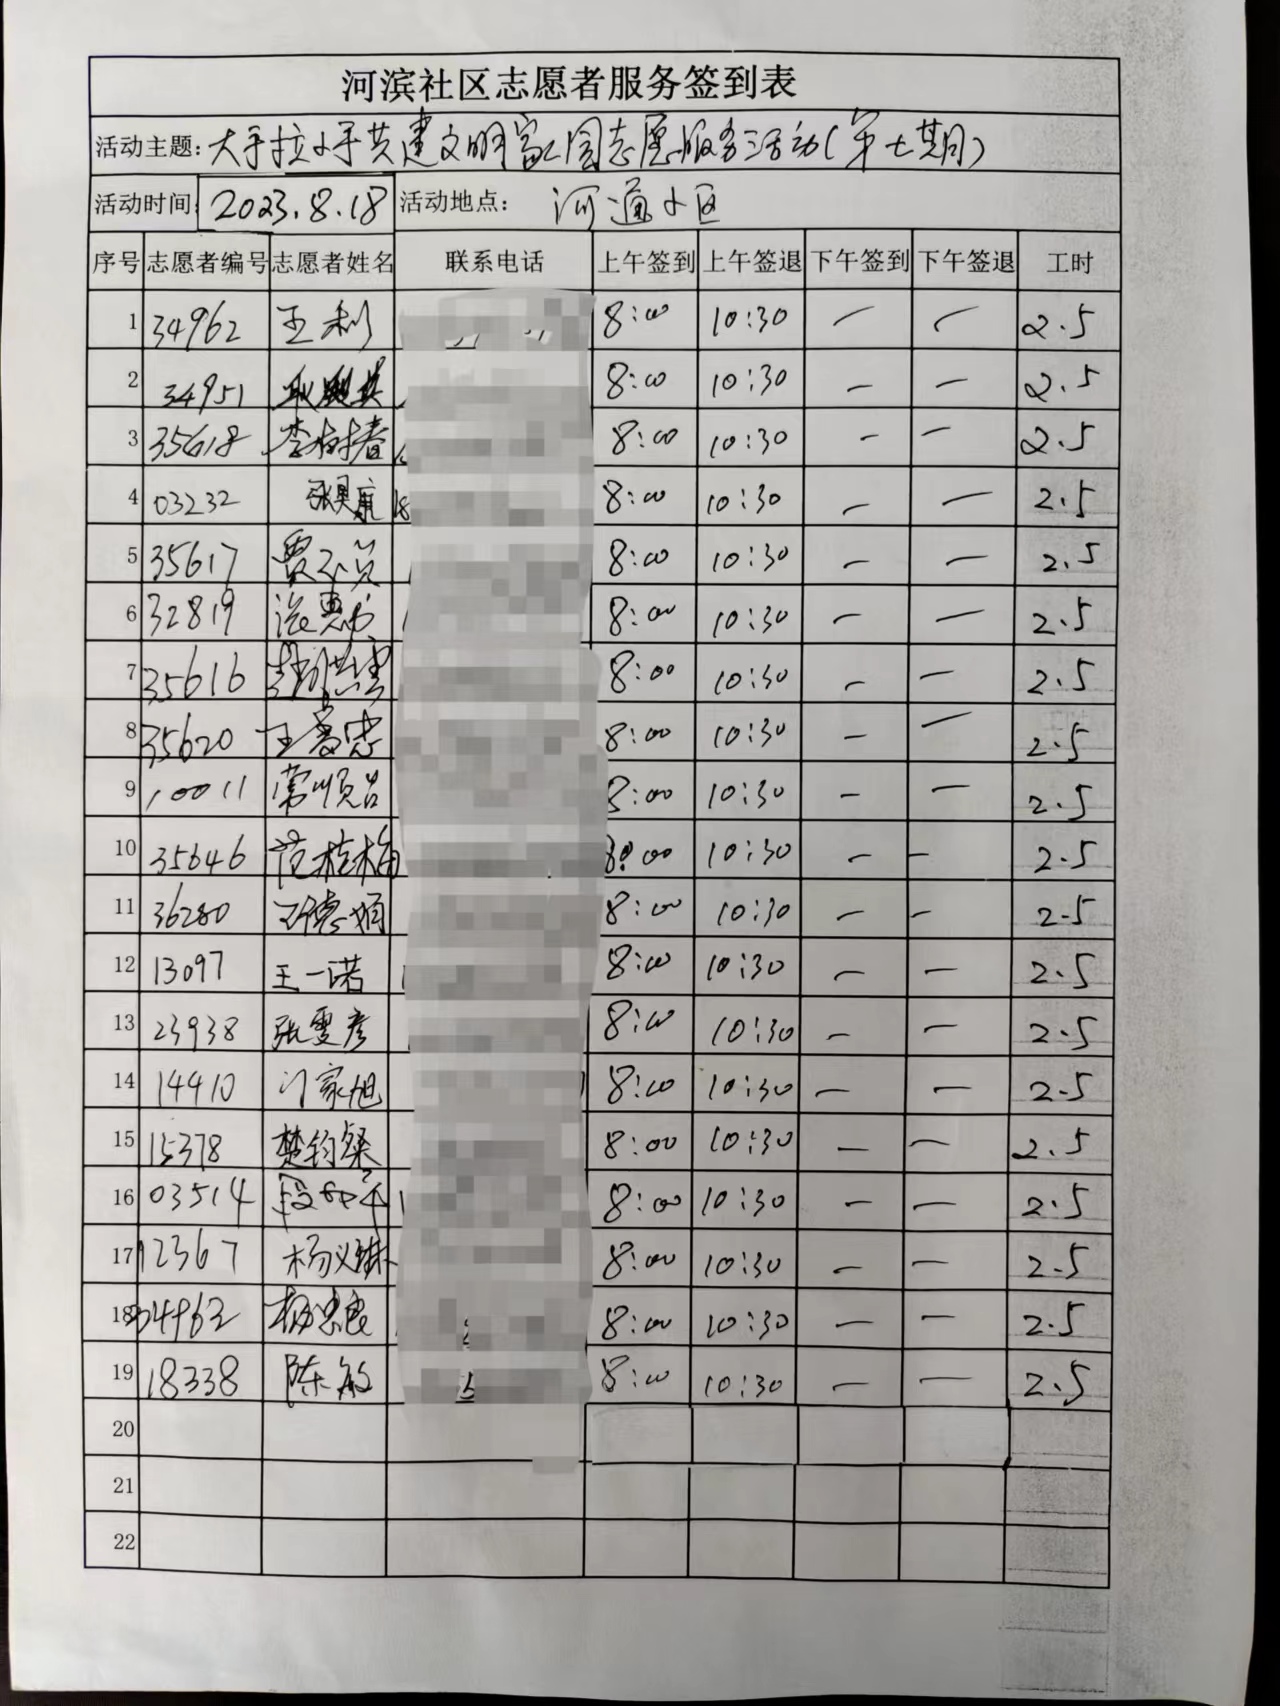 河滨社区志愿者服务签到表
活动主题:大手拉小手共建文明家园志愿服务活动(第七期)
活动时间: 2023.8.18 活动地点: 河通小区
序号 志愿者编号 志愿者姓名 联系电话 上午签到 上午签退 下午签到 下午签退 工时
1 34962 王利 8:00 10:30 — — 2.5
2 34951 8:00 10:30 — — 2.5
3 35618 李树春 8:00 10:30 — — 2.5
4 03232 8:00 10:30 — — 2.5
5 35617 8:00 10:30 — — 2.5
6 32819 8:00 10:30 — — 2.5
7 35616 8:00 10:30 — — 2.5
8 35620 8:00 10:30 — — 2.5
9 10011 常顺吕 8:00 10:30 — — 2.5
10 35646 范桂梅 8:00 10:30 — — 2.5
11 36280 8:00 10:30 — — 2.5
12 13097 王一诺 8:00 10:30 — — 2.5
13 23938 张雯彦 8:00 10:30 — — 2.5
14 14410 门家旭 8:00 10:30 — — 2.5
15 15378 楚钧粲 8:00 10:30 — — 2.5
16 03514 8:00 10:30 — — 2.5
17 12367 杨义琳 8:00 10:30 — — 2.5
18 34962 杨忠良 8:00 10:30 — — 2.5
19 18338 陈敏 8:00 10:30 — — 2.5
20
21
22